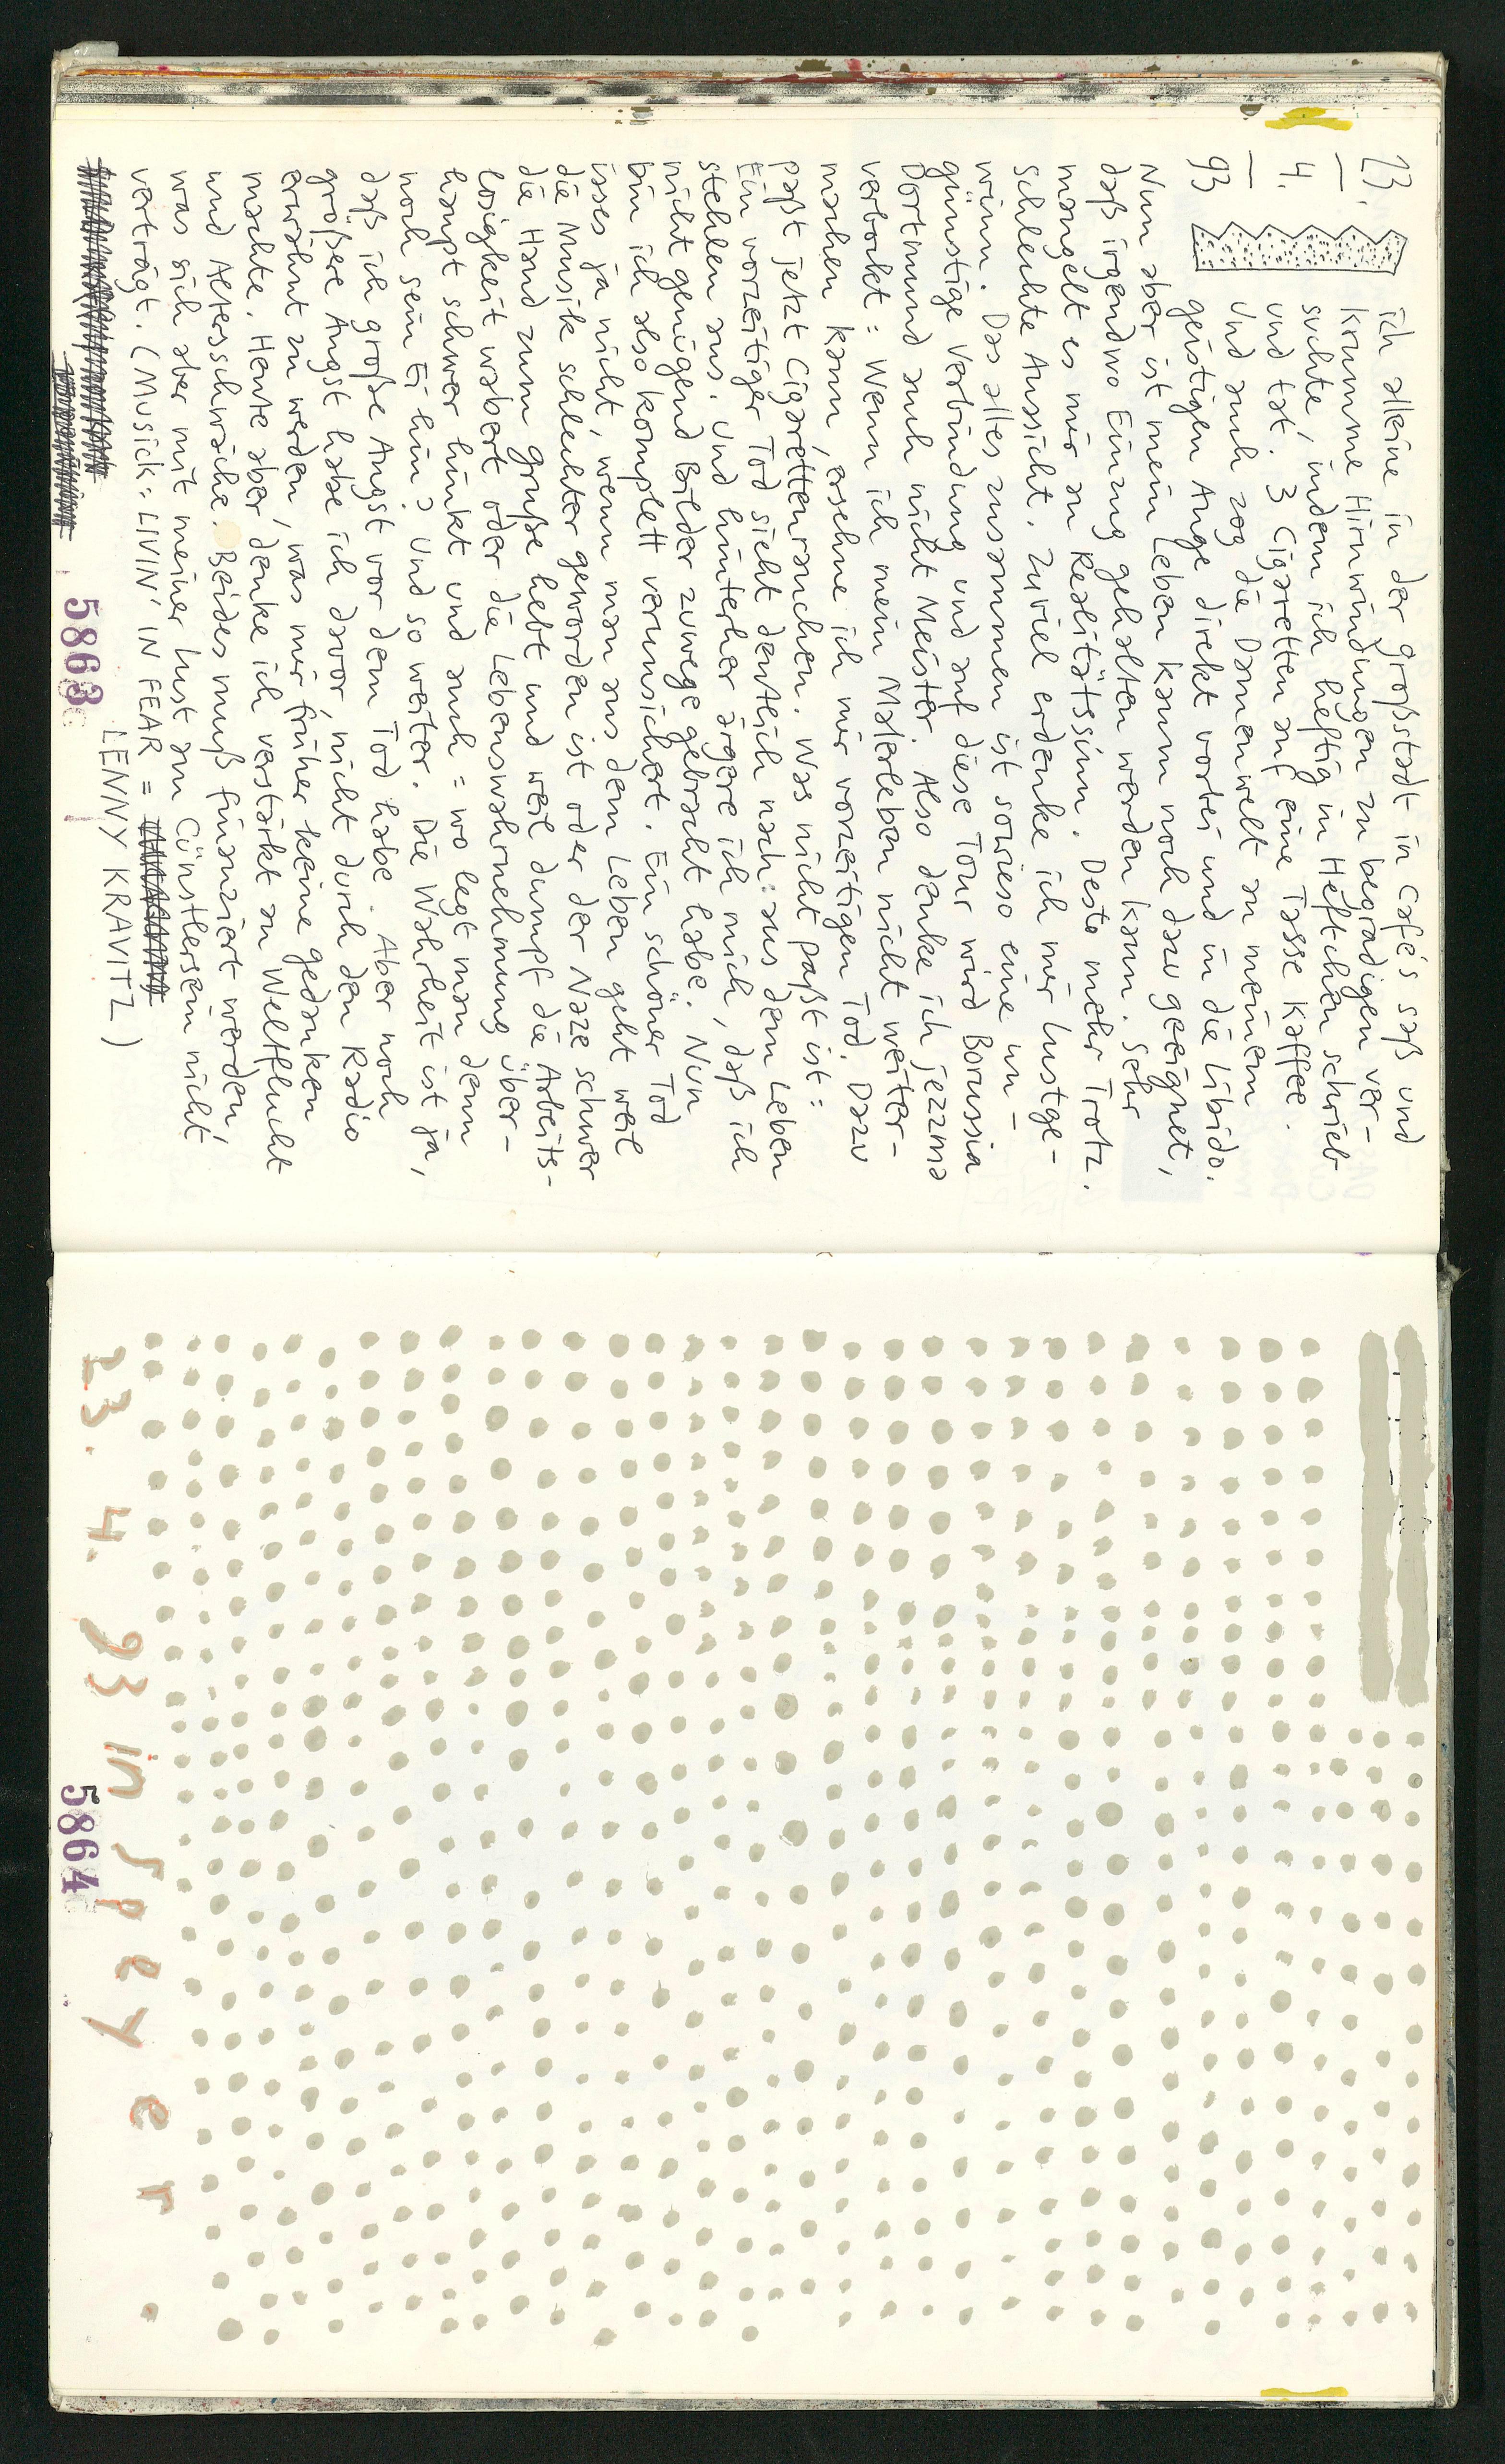 23.
—
4.
—
93
ich alleine in der großstadt in Cafés saß und
krumme Hirnwindungen zu begradigen ver-
suchte, indem ich heftig in Heftchen schrieb
und tat. 3 Cigaretten auf eine Tasse Kaffee.
Und auch zog die Damenwelt an meinem
geistigen Auge direkt vorbei und in die Libido.
Nun aber ist mein Leben kaum noch dazu geeignet,
daß irgendwo Einzug gehalten werden kann. Sehr
mangelt es mir an Realitätssinn. Desto mehr Trotz.
Schlechte Aussicht. Zuviel erdenke ich mir Lustge-
winn. Das alles zusammen ist sowieso eine un-
günstige Verbindung und auf diese Tour wird Borussia
Dortmund auch nicht Meister. Also denke ich jezzma
verbockt: Wenn ich mein Malerleben nicht weiter-
machen kann, ersehne ich mir vorzeitigen Tod. Dazu
paßt jetzt Cigarettenrauchen. Was nicht paßt ist:
Ein vorzeitiger Tod sieht deutlich nach: aus dem Leben
stehlen aus. Und hinterher ärgere ich mich, daß ich
nicht genügend Bilder zuwege gebracht habe. Nun
bin ich also komplett verunsichert. Ein schöner Tod
isses ja nicht, wenn man aus dem Leben geht weil
die Musik schlechter geworden ist oder der Naze schwer
die Hand zum Gruße hebt und weil dumpf die Arbeits-
losigkeit wabert oder die Lebenswahrnehmung über-
haupt schwer hinkt und auch = wo legt man denn
noch sein Ei hin? Und so weiter. Die Wahrheit ist ja,
daß ich große Angst vor dem Tod habe. Aber noch
größere Angst habe ich davor, nicht durch den Radio
erwähnt zu werden, was mir früher keine gedanken
machte. Heute aber denke ich verstärkt an Weltflucht
und Altersschwäche. Beides muß finanziert werden,
was sich aber mit meiner Lust am Cünstlersein nicht
verträgt. (Musick: LIVIN' IN FEAR =
LENNY KRAVITZ)
5863
23. 4. 93 in Speyer.
5864